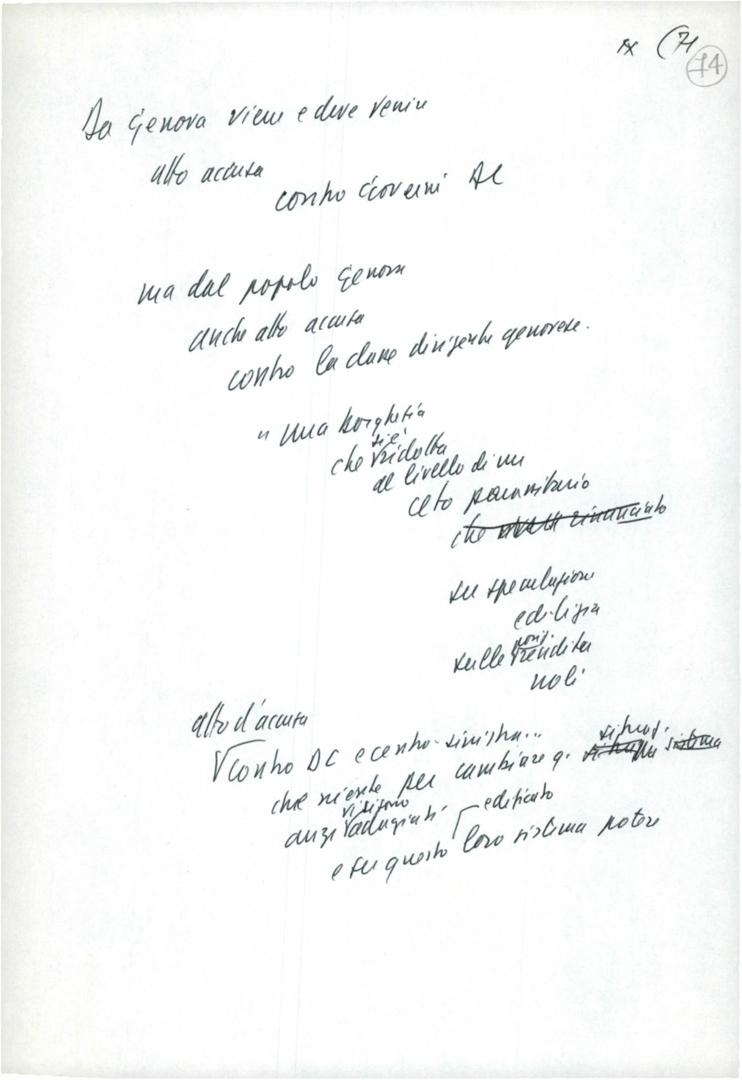 (71
14
Da Genova viene e deve venire
atto accusa
contro Governi DC
ma dal popolo genova
anche atto accusa
contro la classe dirigente genovese.
" una borghesia
si è
che ridotta
al livello di un
ceto parassitario
che rinunciato
su speculazione
edilizia
sulle rendita
noli
atto d'accusa
contro DC e centro-sinistra...
che niente per cambiare q. situaz. sistema
vi si sono
anzi adagiati
edificato
e su questo loro sistema potere